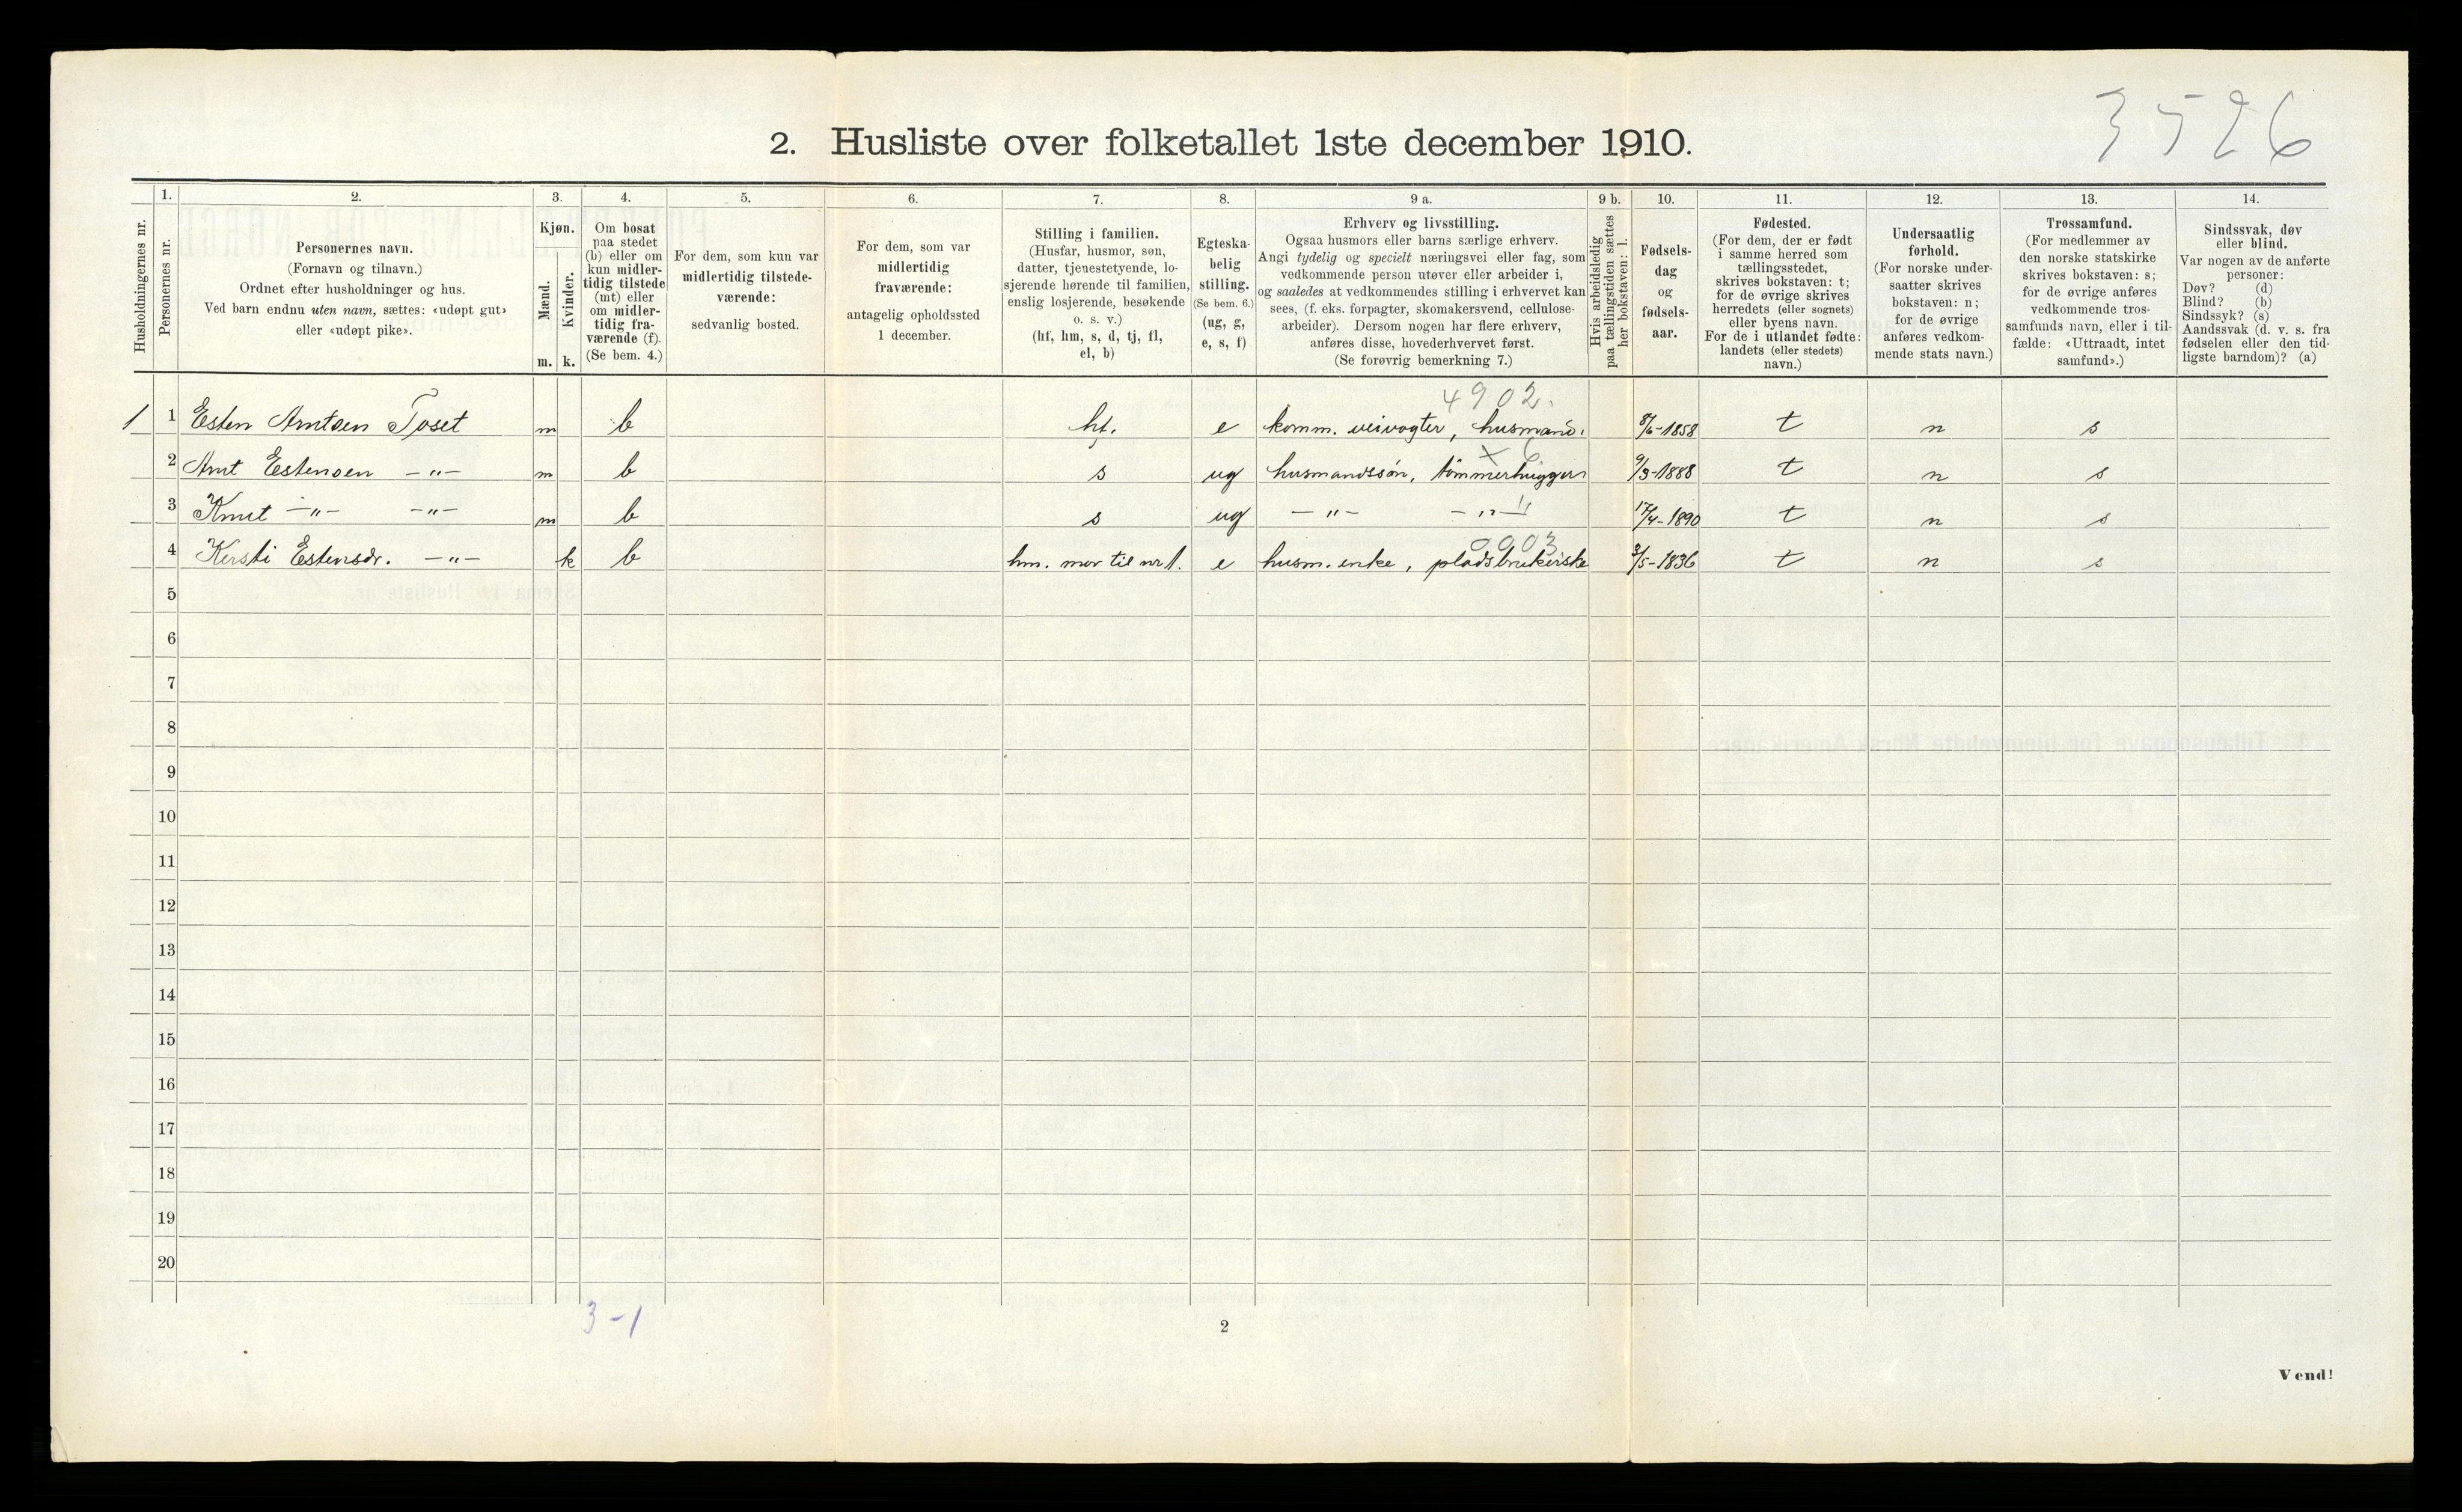 3526
2. Husliste over folketallet 1ste december 1910.
Husholdningernes nr.
1.
Personernes nr.
2.
Personernes navn.
(Fornavn og tilnavn.)
Ordnet efter husholdninger og hus.
Ved barn endnu uten navn, sættes: «udøpt gut»
eller «udøpt pike».
3.
Kjøn.
Mænd.
m.
Kvinder.
k.
4.
Om bosat
paa stedet
(b) eller om
kun midler-
tidig tilstede
(mt) eller
om midler-
tidig fra-
værende (f).
(Se bem. 4.)
5.
For dem, som kun var
midlertidig tilstede-
værende:
sedvanlig bosted.
6.
For dem, som var
midlertidig
fraværende:
antagelig opholdssted
1 december.
7.
Stilling i familien.
(Husfar, husmor, søn,
datter, tjenestetyende, lo-
sjerende hørende til familien,
enslig losjerende, besøkende
o. s. v.)
(hf, hm, s, d, tj, fl,
el, b)
8.
Egteska-
belig
stilling.
(Se bem. 6.)
(ug, g,
e, s, f)
9 a.
Erhverv og livsstilling.
Ogsaa husmors eller barns særlige erhverv.
Angi tydelig og specielt næringsvei eller fag, som
vedkommende person utøver eller arbeider i,
og saaledes at vedkommendes stilling i erhvervet kan
sees, (f. eks. forpagter, skomakersvend, cellulose-
arbeider). Dersom nogen har flere erhverv,
anføres disse, hovederhvervet først.
(Se forøvrig bemerkning 7.)
9 b.
Hvis arbeidsledig
paa tællingstiden sættes
her bokstaven: l.
10.
Fødsels-
dag
og
fødsels-
aar.
11.
Fødested.
(For dem, der er født
i samme herred som
tællingsstedet,
skrives bokstaven: t;
for de øvrige skrives
herredets (eller sognets)
eller byens navn.
For de i utlandet fødte:
landets (eller stedets)
navn.)
12.
Undersaatlig
forhold.
(For norske under-
saatter skrives
bokstaven: n;
for de øvrige
anføres vedkom-
mende stats navn.)
13.
Trossamfund.
(For medlemmer av
den norske statskirke
skrives bokstaven: s;
for de øvrige anføres
vedkommende tros-
samfunds navn, eller i til-
fælde: «Uttraadt, intet
samfund».)
14.
Sindssvak, døv
eller blind.
Var nogen av de anførte
personer:
Døv? (d)
Blind? (b)
Sindssyk? (s)
Aandssvak (d. v. s. fra
fødselen eller den tid-
ligste barndom)? (a)
4902.
1 1 Esten Arntsen Toset m b hf. e komm. veivogter, husmand. 8/6-1858 t n s
2 Arnt Estensen -"- m b s ug husmandssøn, tømmerhugger 9/3-1888 t n s
3 Knut -"- -"- m b s ug -"- -"- 17/4-1890 t n s
0903
4 Kersti Estensdr. -"- k b hm. mor til nr 1. e husm. enke, pladsbrukerske 3/5-1836 t n s
5
6
7
8
9
10
11
12
13
14
15
16
17
18
19
20
3-1
2
Vend!